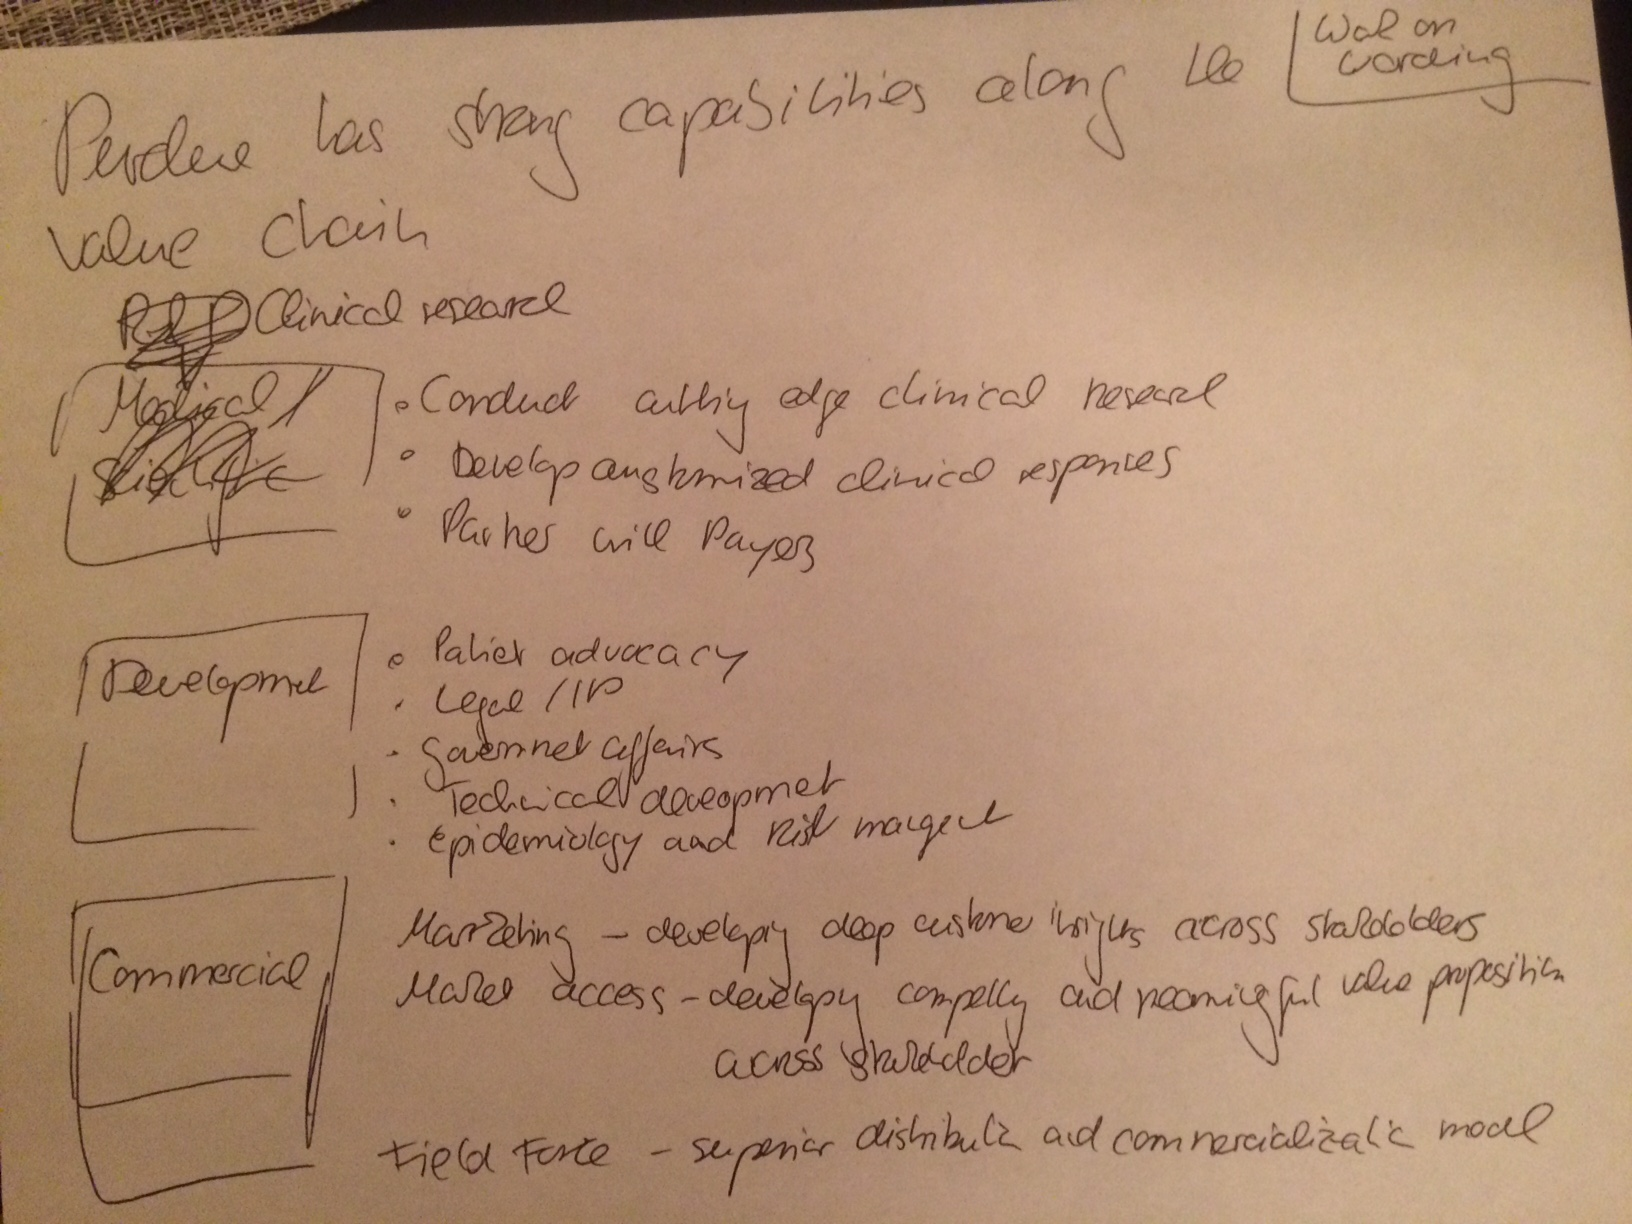 Work on
wording
Purdue has strong capabilities along the
value chain
Clinical research
Medical /
Scientific
• Conduct cutting edge clinical research
• Develop customized clinical responses
• Partner with Payers
Development
• Patient advocacy
• Legal / IP
• Government affairs
• Technical development
• Epidemiology and Risk management
Commercial
Marketing – developing deep customer insights across stakeholders
Market access – developing compelling and meaningful value proposition
across stakeholder
Field Force – superior distribution and commercialization model